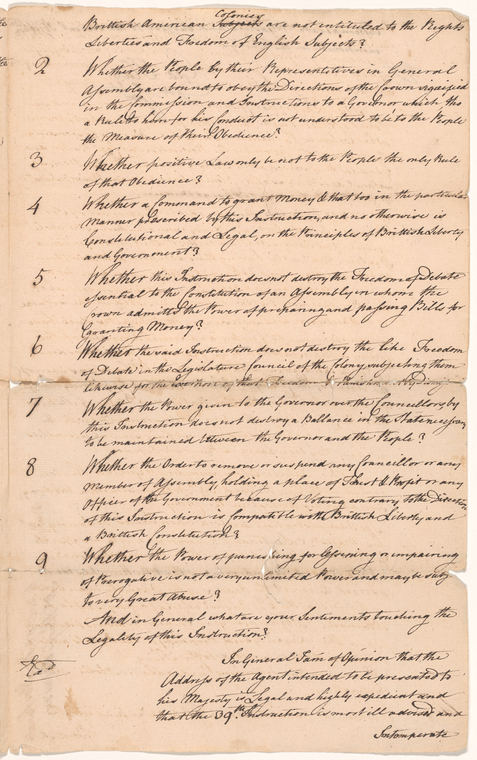 Colonies
Brittish American Subjects are not entituled to the Rights
Liberties and Freedom of English Subjects?
2 Whether the People by their Representatives in General
Assembly are bound to obey the Directions of the Crown signified
in the Commission and Instructions to a Governor which tho
a Rule to him for his Conduct is not understood to be to the People
the Measure of their Obedience?
3 Whether positive Laws only be not to the People the only Rule
of that Obedience?
4 Whether a Command to grant Money & that too in the particular
Manner prescribed by this Instruction, and no otherwise is
Constitutional and Legal, on the Principles of Brittish Liberty
and Government?
5 Whether this Instruction does not destroy the Freedom of Debate
essential to the Constitution of an Assembly in whom the
Crown admitts the Power of preparing and passing Bills for
Granting Money?
6 Whether the said Instruction does not destroy the like Freedom
of Debate in the Legislative Council of the Colony, subjecting them
likewise for the Exertion of that Freedom to
7 Whether the Power given to the Governor over the Councillors by
this Instruction does not destroy a Ballance in the State necessary
to be maintained between the Governor and the People?
8 Whether the Order to remove or suspend any Councillor or any
Member of Assembly holding a place of Trust & Profit or any
Officer of the Government because of Voting contrary to the Direction
of this Instruction is Compatible with Brittish Liberty and
a Brittish Constitution?
9 Whether the Power of punishing for lessening or impairing
of Prerogative is not a very unlimited Power and may be subj
to very Great Abuse?
And in General what are your Sentiments touching the
Legality of this Instruction?
In General I am of Opinion that the
Address of the Agent intended to be presented to
his Majesty is Legal and highly expedient and
that the 39th. Instruction is most ill advised and
Intemperate